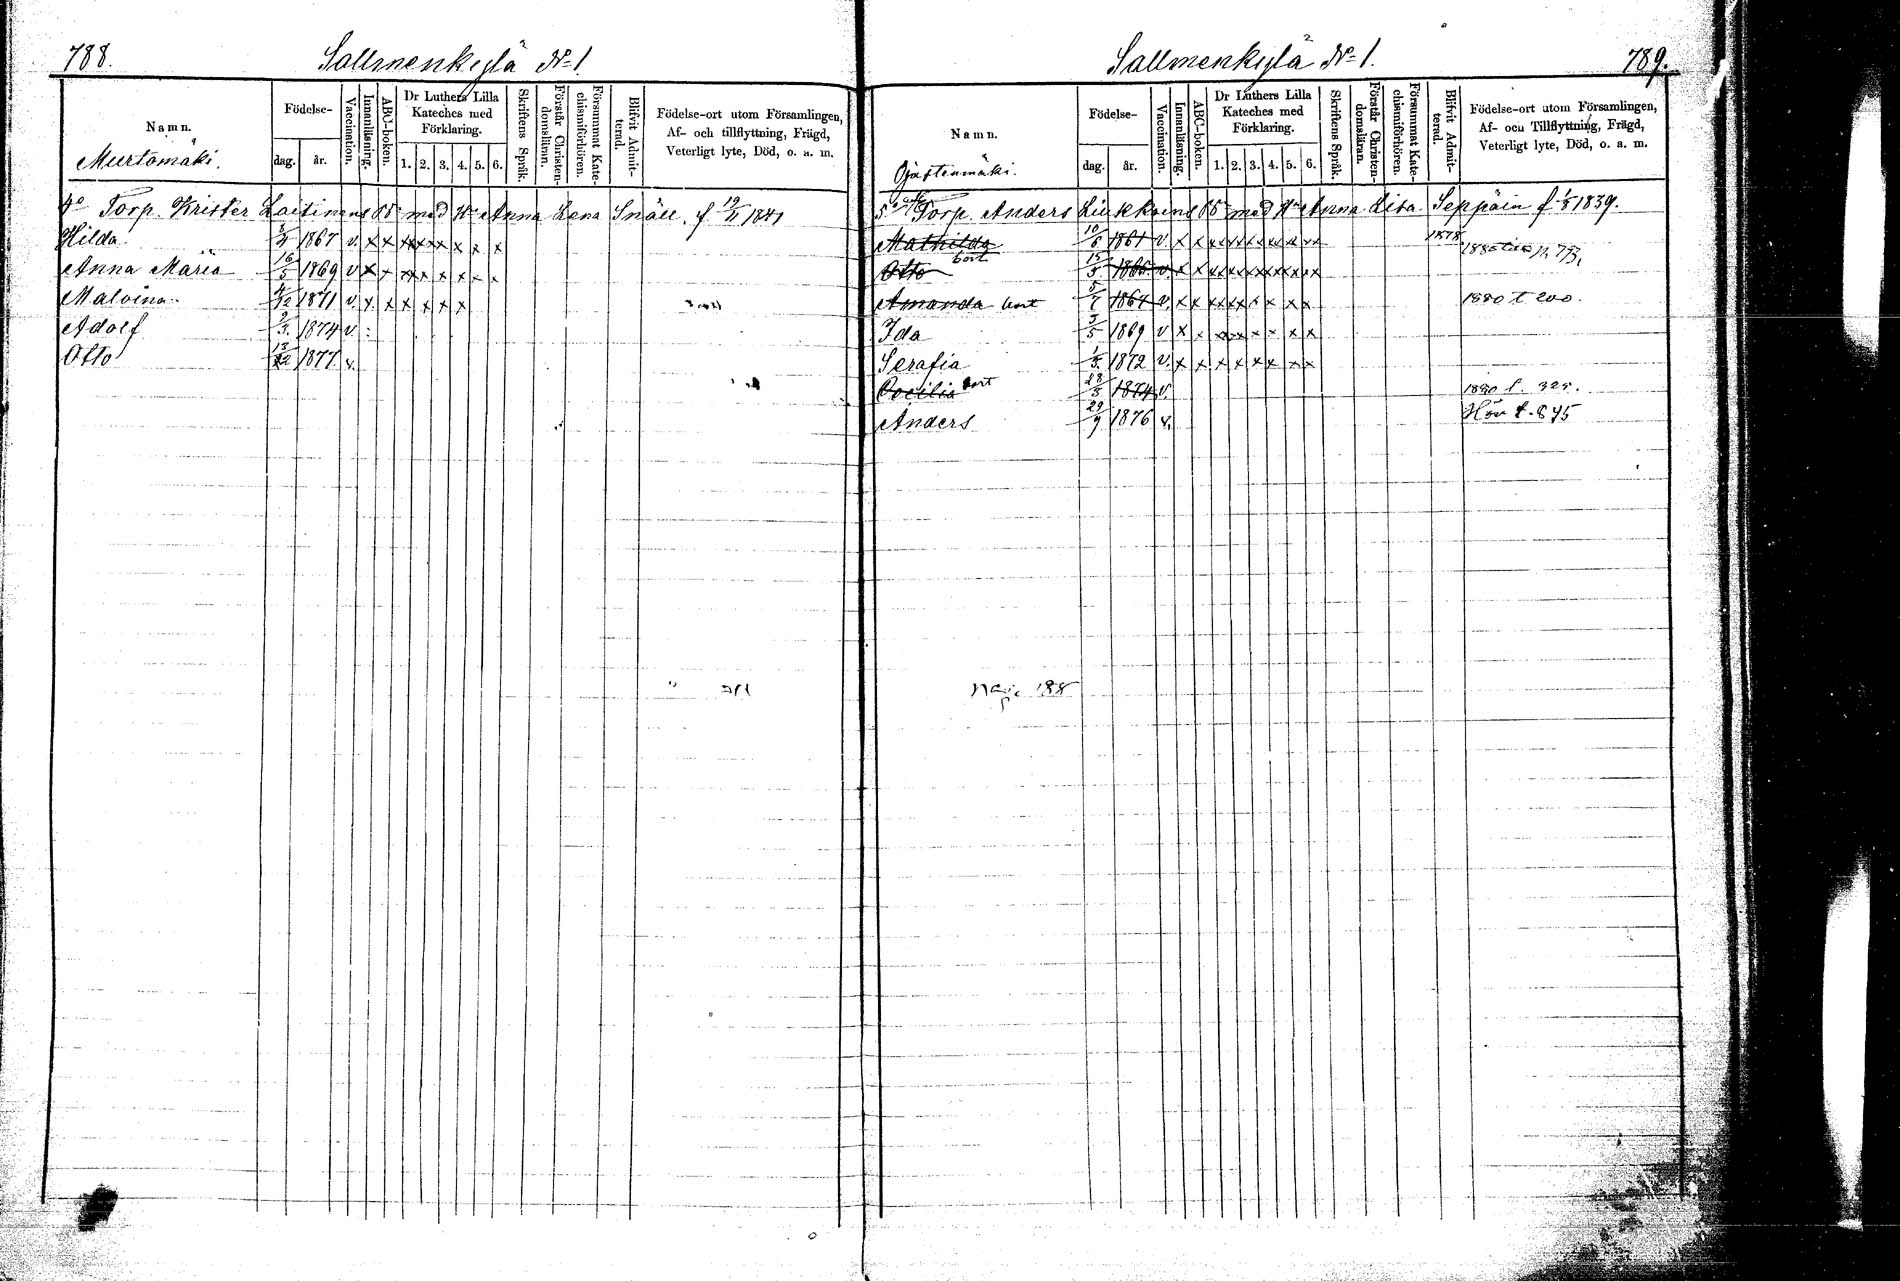 788.
Sallmenkylä No 1.
Namn.
Murtomäki.
Födelse-
dag. år.
Vaccination.
Innanläsning.
ABC-boken.
Dr Luthers Lilla Kateches med Förklaring.
1. 2. 3. 4. 5. 6.
Skriftens Språk.
Förstår Christendomsläran.
Försummat Katechismiförhören.
Blifvit Admitterad.
Födelse-ort utom Församlingen,
Af- och tillflyttning, Frägd,
Veterligt lyte, Död, o. a. m.
4o Torp. Krister Laitinens med Hu Anna Lena Snäll, f. 19/11 1841
Hilda 1867 v. x x x x x x x x x
Anna Maria 16/5 1869 v x x x x x x x x x
Malvina 4/12 1871 v. x x x x x x
Adolf 2/3 1874 v.
Otto 13/12 1877 v.
Sallmenkylä No 1.
789.
Namn.
Ojastenmäki.
Födelse-
dag. år.
Vaccination.
Innanläsning.
ABC-boken.
Dr Luthers Lilla Kateches med Förklaring.
1. 2. 3. 4. 5. 6.
Skriftens Språk.
Förstår Christendomsläran.
Försummat Katechismiförhören.
Blifvit Admitterad.
Födelse-ort utom Församlingen,
Af- och Tillflyttning, Frägd,
Veterligt lyte, Död, o. a. m.
5o Torp. Anders Liukkoins med Hu Anna Lisa Seppäin f. 1/8 1839.
Mathilda 10/6 1861 v. x x xx xx xx xx xx xx 1878
Otto bort 15/5 1866 v. x x xx xx xx xx xx xx
Amanda bort 5/7 1864 v. x x xx xx x x x x 1880 t 200.
Ida 5/5 1869 v x x xx xx x x x x
Serafia 1/5 1872 v. x x x x x x x x
Cecilia bort 28/5 1874 v. 1880 t. 325.
Anders 29/9 1876 v. t. 875